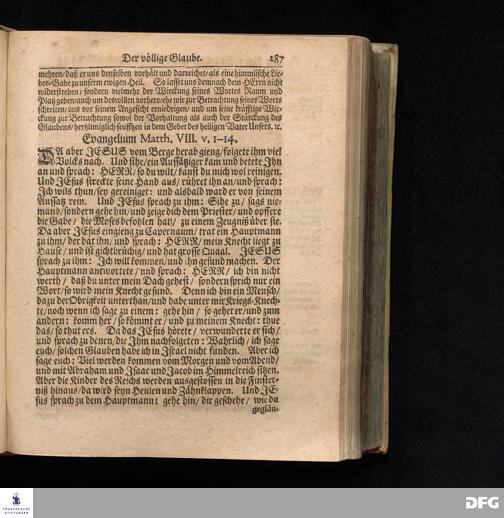 Der völlige Glaube. 287
mehren/ daß er uns denselben vorhält und darreichet/ als eine himmlische Lie-
bes-Gabe zu unserm ewigen Heil. So lasset uns demnach dem HErrn nicht
widerstreben/ sondern vielmehr der Würckung seines Wortes Raum und
Platz geben/ auch um deswillen vorhero/ ehe wir zur Betrachtung seines Worts
schreiten/ uns vor seinem Angesicht erniedrigen/ und um seine kräfftige Wür-
ckung zur Betrachtung sowol der Vorhaltung als auch der Stärckung des
Glaubens/ hertzinniglich seufftzen in dem Gebet des heiligen Vater Unsers. ꝛc.
Evangelium Matth. VIII. v. 1-14.
DA aber JESUS vom Berge herab gieng/ folgete ihm viel
Volcks nach. Und sihe/ ein Aussätziger kam und betete Ihn
an und sprach: HERR/ so du wilt/ kanst du mich wol reinigen.
Und JEsus streckte seine Hand aus/ rühret ihn an/ und sprach:
Ich wils thun/ sey gereiniget: und alsbald ward er von seinem
Aussatz rein. Und JEsus sprach zu ihm: Sihe zu/ sags nie-
mand/ sondern gehe hin/ und zeige dich dem Priester/ und opffere
die Gabe/ die Moses befohlen hat/ zu einem Zeugniß über sie.
Da aber JEsus eingieng zu Capernaum/ trat ein Hauptmann
zu ihm/ der bat ihn/ und sprach: HERR/ mein Knecht liegt zu
Hause/ und ist gichtbrüchig/ und hat grosse Quaal. JESUS
sprach zu ihm: Ich will kommen/ und ihn gesund machen. Der
Hauptmann antwortete/ und sprach: HERR/ ich bin nicht
werth/ daß du unter mein Dach gehest/ sondern sprich nur ein
Wort/ so wird mein Knecht gesund. Denn ich bin ein Mensch/
dazu der Obrigkeit unterthan/ und habe unter mir Kriegs-Knech-
te/ noch wenn ich sage zu einem: gehe hin/ so gehet er/ und zum
andern: komm her/ so kommt er/ und zu meinem Knecht: thue
das/ so thut ers. Da das JEsus hörete/ verwunderte er sich/
und sprach zu denen/ die Ihm nachfolgeten: Wahrlich/ ich sage
euch/ solchen Glauben habe ich in Israel nicht funden. Aber ich
sage euch: Viel werden kommen vom Morgen und vom Abend/
und mit Abraham und Isaac und Jacob im Himmelreich sitzen.
Aber die Kinder des Reichs werden ausgestossen in die Finster-
niß hinaus/ da wird seyn Heulen und Zähnklappen. Und JE-
sus sprach zu dem Hauptmann: gehe hin/ dir geschehe/ wie du
gegläu-
FRANCKESCHE
STIFTUNGEN
DFG